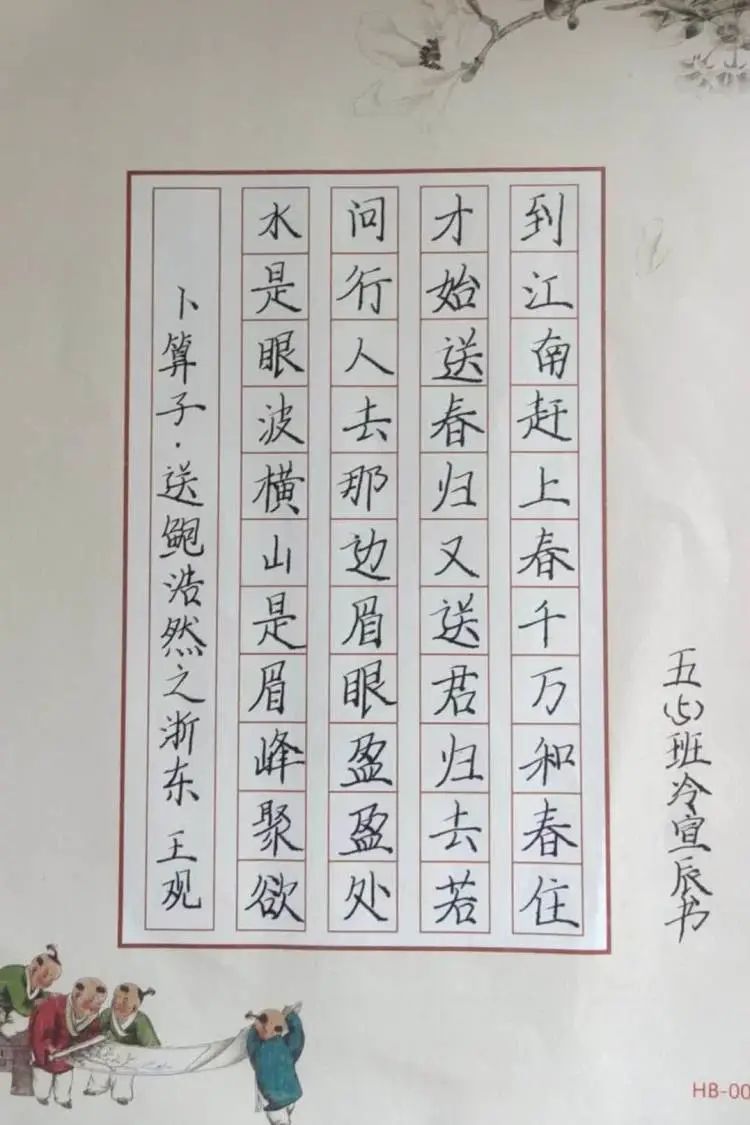 卜算子·送鲍浩然之浙东 王观
水是眼波横山是眉峰聚欲
问行人去那边眉眼盈盈处
才始送春归又送君归去若
到江南赶上春千万和春住
五(5)班冷宣辰书
HB-00